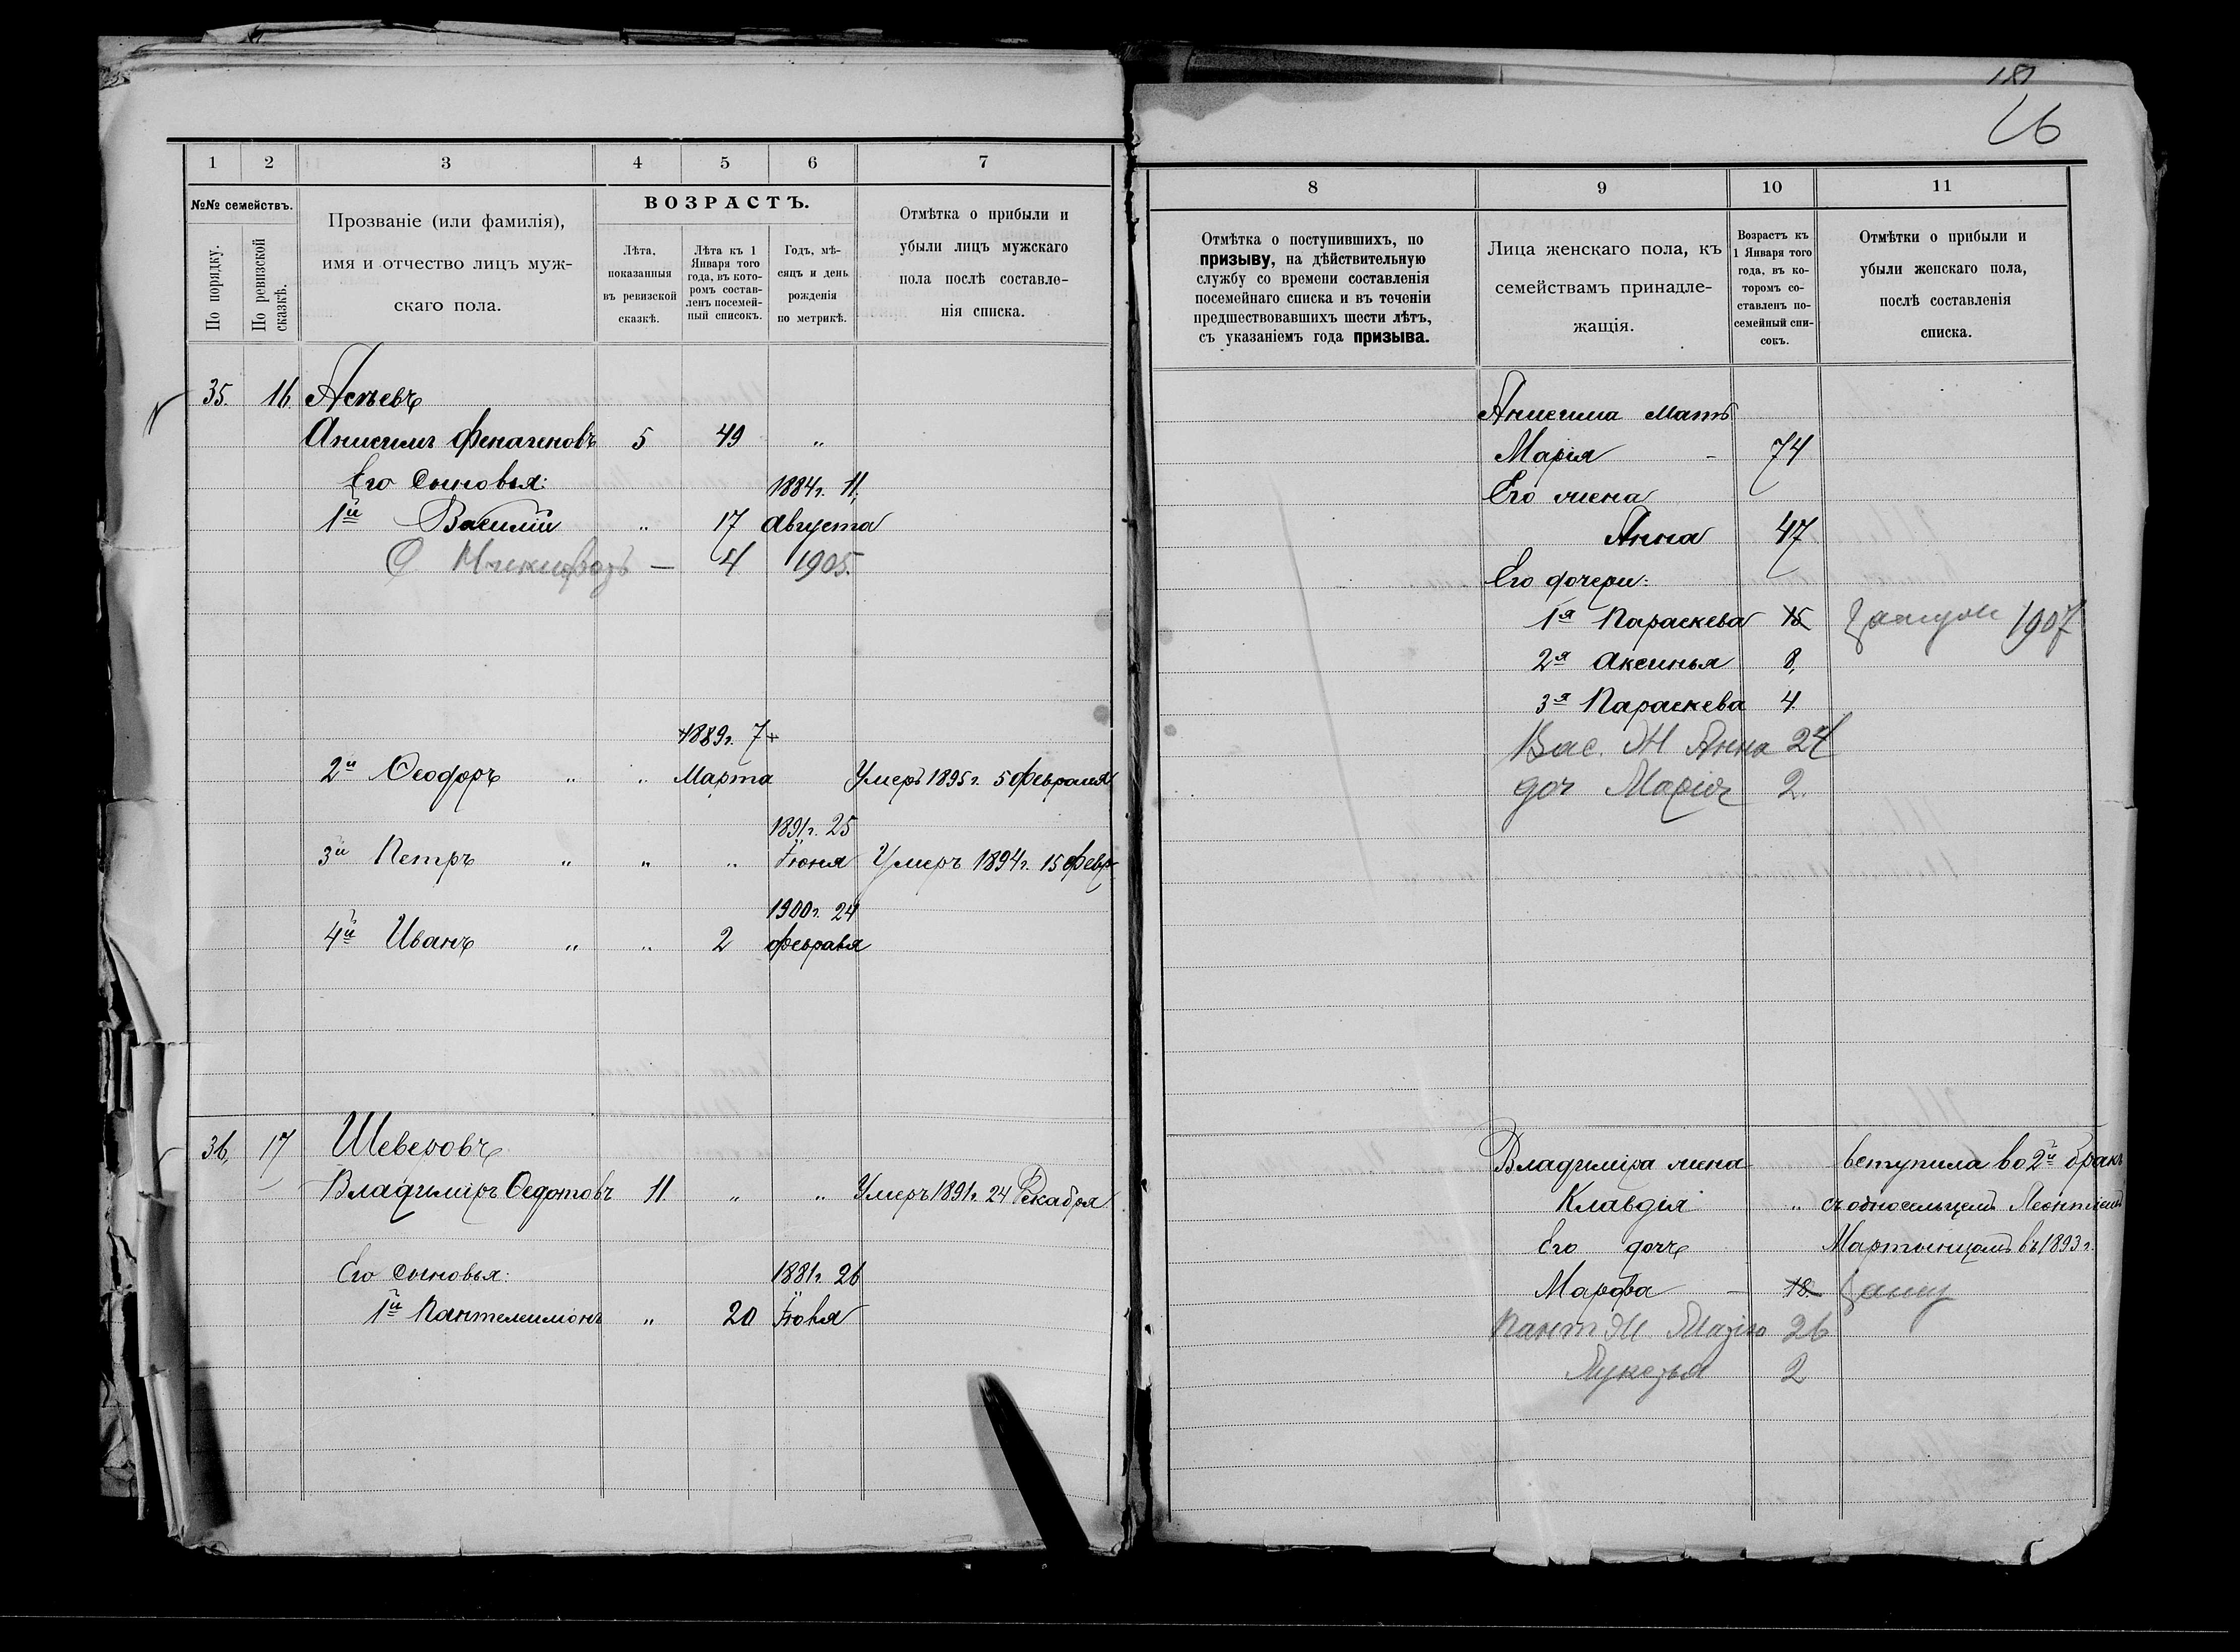 1 2 3 4 5 6 7
№№ семействъ.
По порядку.
По ревизской сказкѣ.
Прозваніе (или фамилія),
имя и отчество лицъ муж-
скаго пола.
ВОЗРАСТЪ.
Лѣта,
показанныя
въ ревизской
сказкѣ.
Лѣта къ 1
Января того
года, въ кото-
ромъ состав-
ленъ посемей-
ный списокъ.
Годъ, мѣ-
сяцъ и день
рожденія
по метрикѣ.
Отмѣтка о прибыли и
убыли лицъ мужскаго
пола послѣ составле-
нія списка.
35. 16
Анисимъ 5 49 "
Его сыновья: 1884 г. 11
1й Василій " 17 Августа
С — 4 1905.
1889 г. 7
2й Ѳеодоръ " " Марта Умеръ 1895 г. 5 Февраля
1891 г. 25
3й Петръ " " " Іюня Умеръ 1894 г. 15 Февр.
1900 г. 24
4й Иванъ " " 2 февраля
36. 17 Шеверовъ
Владиміръ Ѳедотовъ 11 " " Умеръ 1891 г. 24 Декабря
Его сыновья: 1881 г. 26
1й Пантелеимонъ " 20
26
8 9 10 11
Отмѣтка о поступившихъ, по
призыву, на дѣйствительную
службу со времени составленія
посемейнаго списка и въ теченіи
предшествовавшихъ шести лѣтъ,
съ указаніемъ года призыва.
Лица женскаго пола, къ
семействамъ принадле-
жащія.
Возрастъ къ
1 Января того
года, въ ко-
торомъ со-
ставленъ по-
семейный спи-
сокъ.
Отмѣтки о прибыли и
убыли женскаго пола,
послѣ составленія
списка.
Анисима мать
Марія - 74
Его жена
Анна 47
Его дочери:
1я Параскева 15 Замуж 1907
2я Аксинья 8,
3я Параскева 4
Вас. Ж Анна 24
доч Марія 2.
Владиміра жена вступила во 2й бракъ
Клавдія " съ односельцемъ Леонтіемъ
Его дочь въ 1893 г.
Марфа - 18 Заму
Пант Ж. 26
Лукерья 2